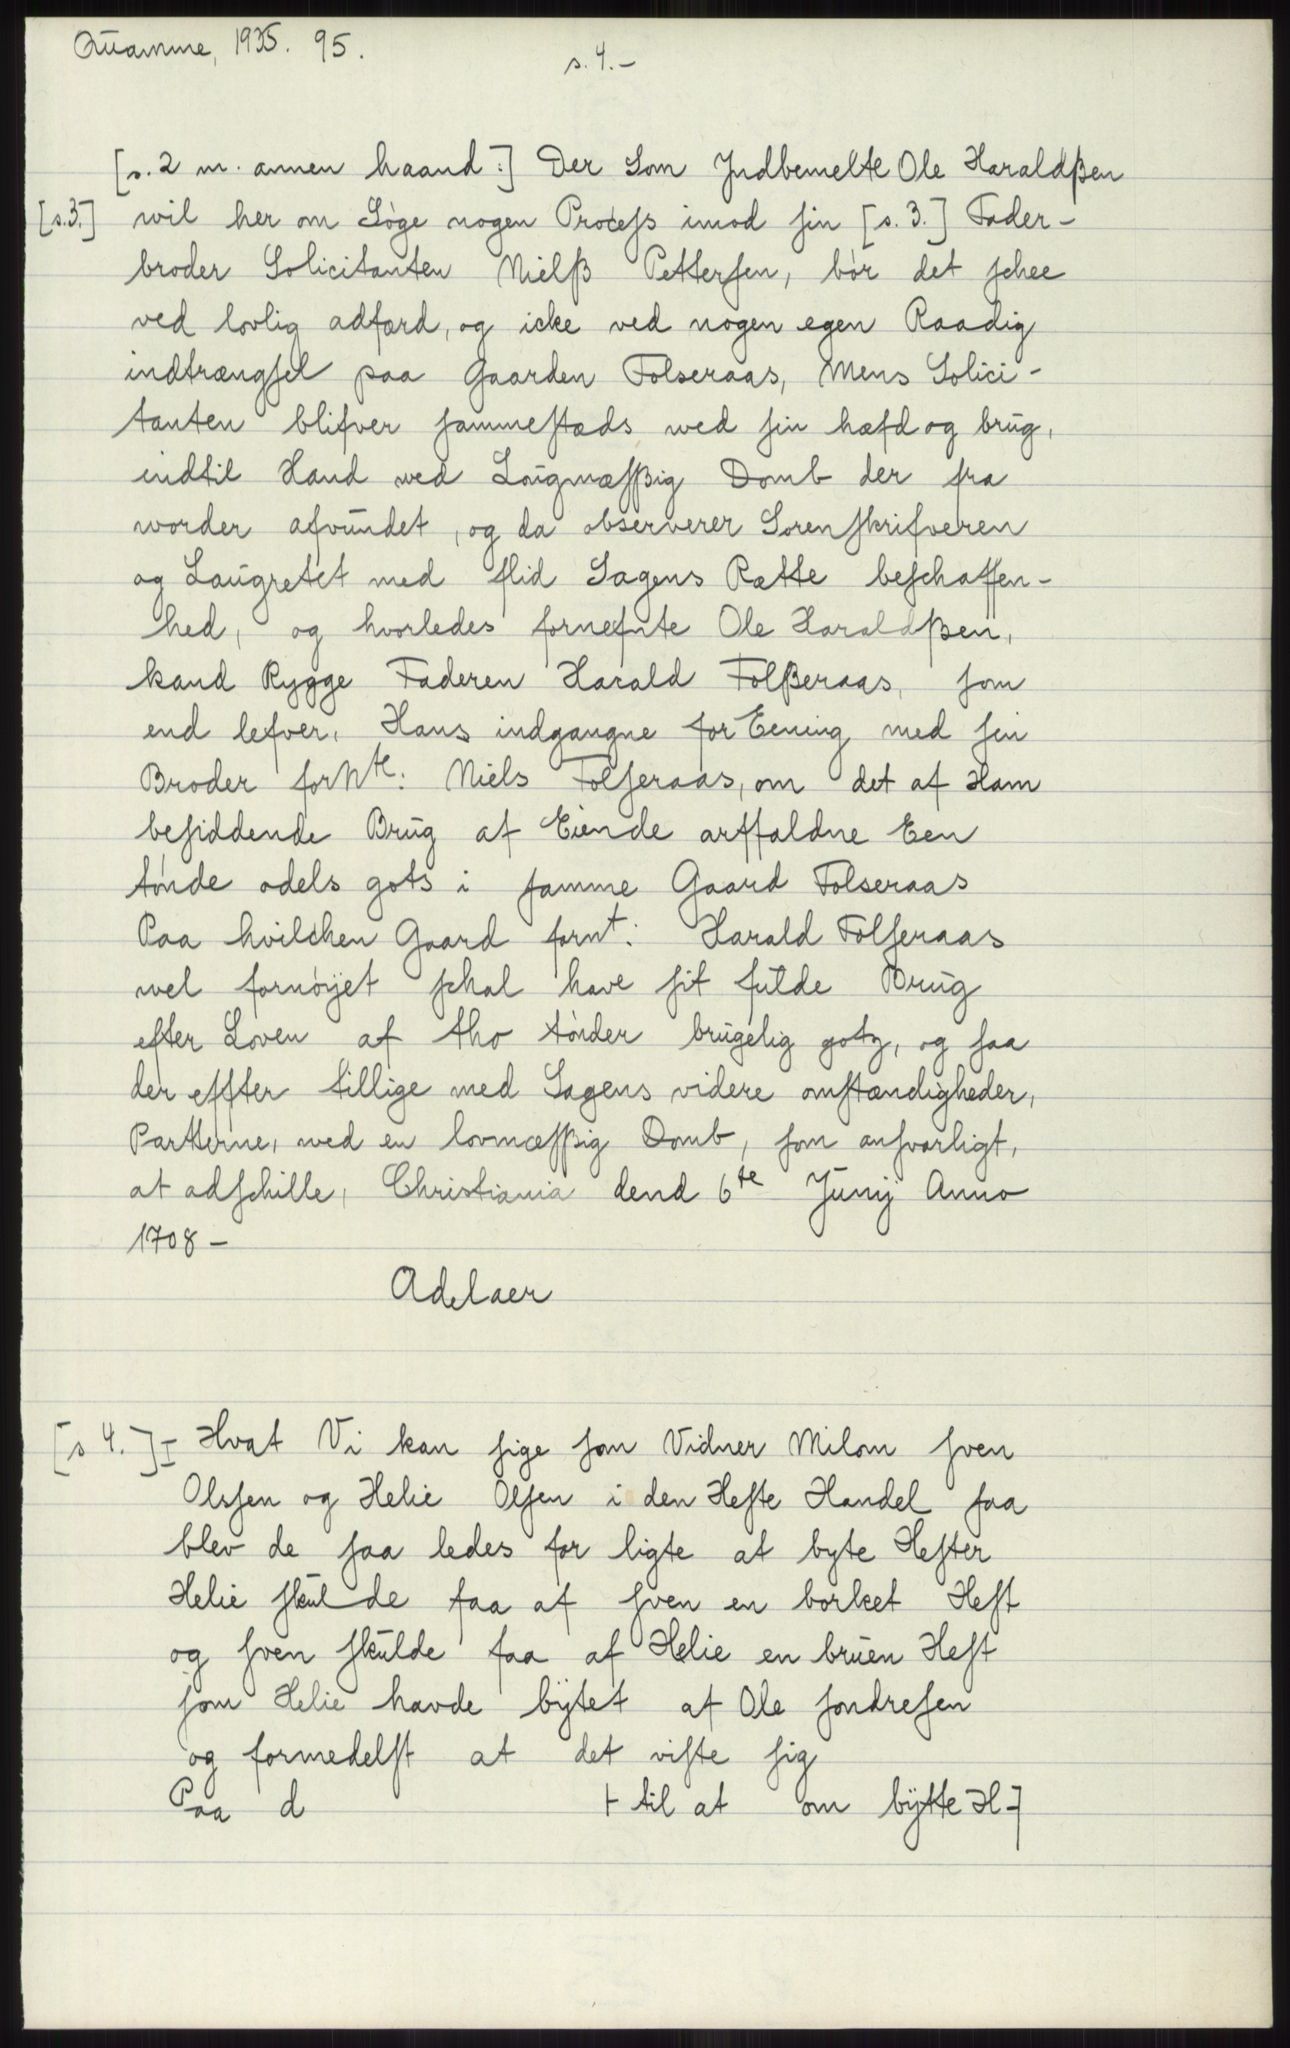 Qúamme, 1935. 95.
s. 4. –
[s. 2 m. annen haand:] Der Som Jndbemelte Ole Haraldßen
[s. 3.] wil her om Söge nogen Process imod sin [s. 3.] Fader-
broder Solicitanten Nielß Pettersen, bör det schee
ved lovlig adfærd, og icke ved nogen egen Raadig
indtrængsel paa Gaarden Folseraas, Mens Solici-
tanten blifver sammestæds wed sin hæfd og brúg,
indtil Hand wed Loúgmæsßig Domb der fra
worder afvúndet, og da observerer Sorenskrifveren
og Laúgretet med flid Sagens Rætte beschaffen-
hed, og hvorledes fornefnte Ole Haraldßen,
kand Rygge Faderen Harald Folßeraas, som
end lefver, Hans indgangne for Eening med sin
Broder forNte: Niels Folseraas, om det af Ham
besiddende Brúg af Eiende arffaldne Een
tönde odels gots i samme Gaard Folseraas
Paa hvilchen Gaard fornt: Harald Folseraas
wel fornöyet schal have sit fúlde Brúg
efter Loven af tho tönder brúgelig gotz, og saa
der effter tillige med Sagens videre omstændigheder,
Partterne, wed en lovmæsßig Domb, som ansvarligt,
at adschille, Christiania dend 6te Júnij Anno
1708 –
Adelaer
[s 4.] I Hvat Vi kan sige som Vidner Milom sven
Olssen og Helie Olsen i den Heste Handel saa
blev de saa ledes for ligte at byte Hester
Helie skúlde faa af sven en borket Hest
og sven skúlde faa af Helie en brúen Hest
som Helie havde bÿtet af Ole sondresen
og formedelst at det viste sig
Paa d ⊢ til at om bÿtte H–]